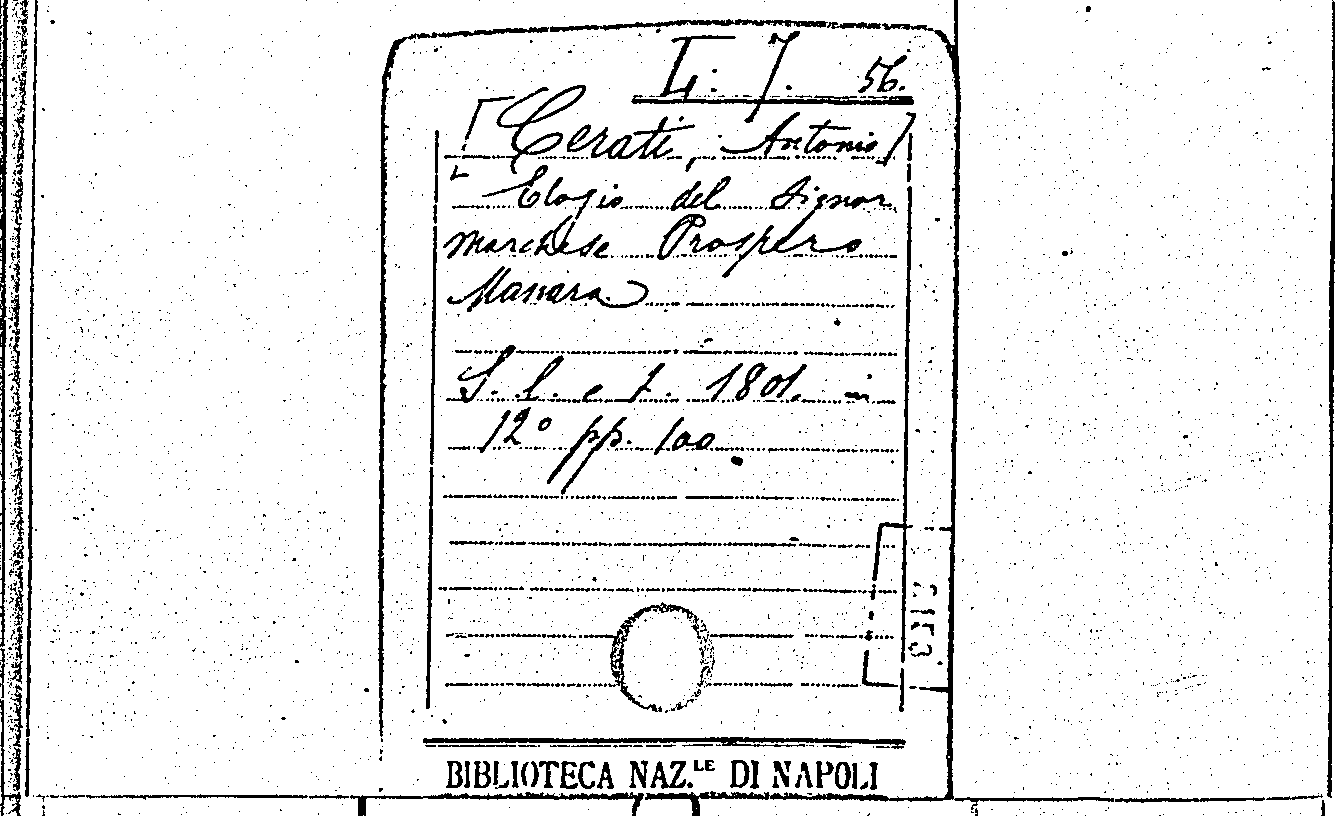 L. 7. 56.
[Cerati, Antonio]
Elogio del Signor
marchese Prospero
Manara
S. l. e t. 1801. in
12° pp. 100
BIBLIOTECA NAZ.LE DI NAPOLI